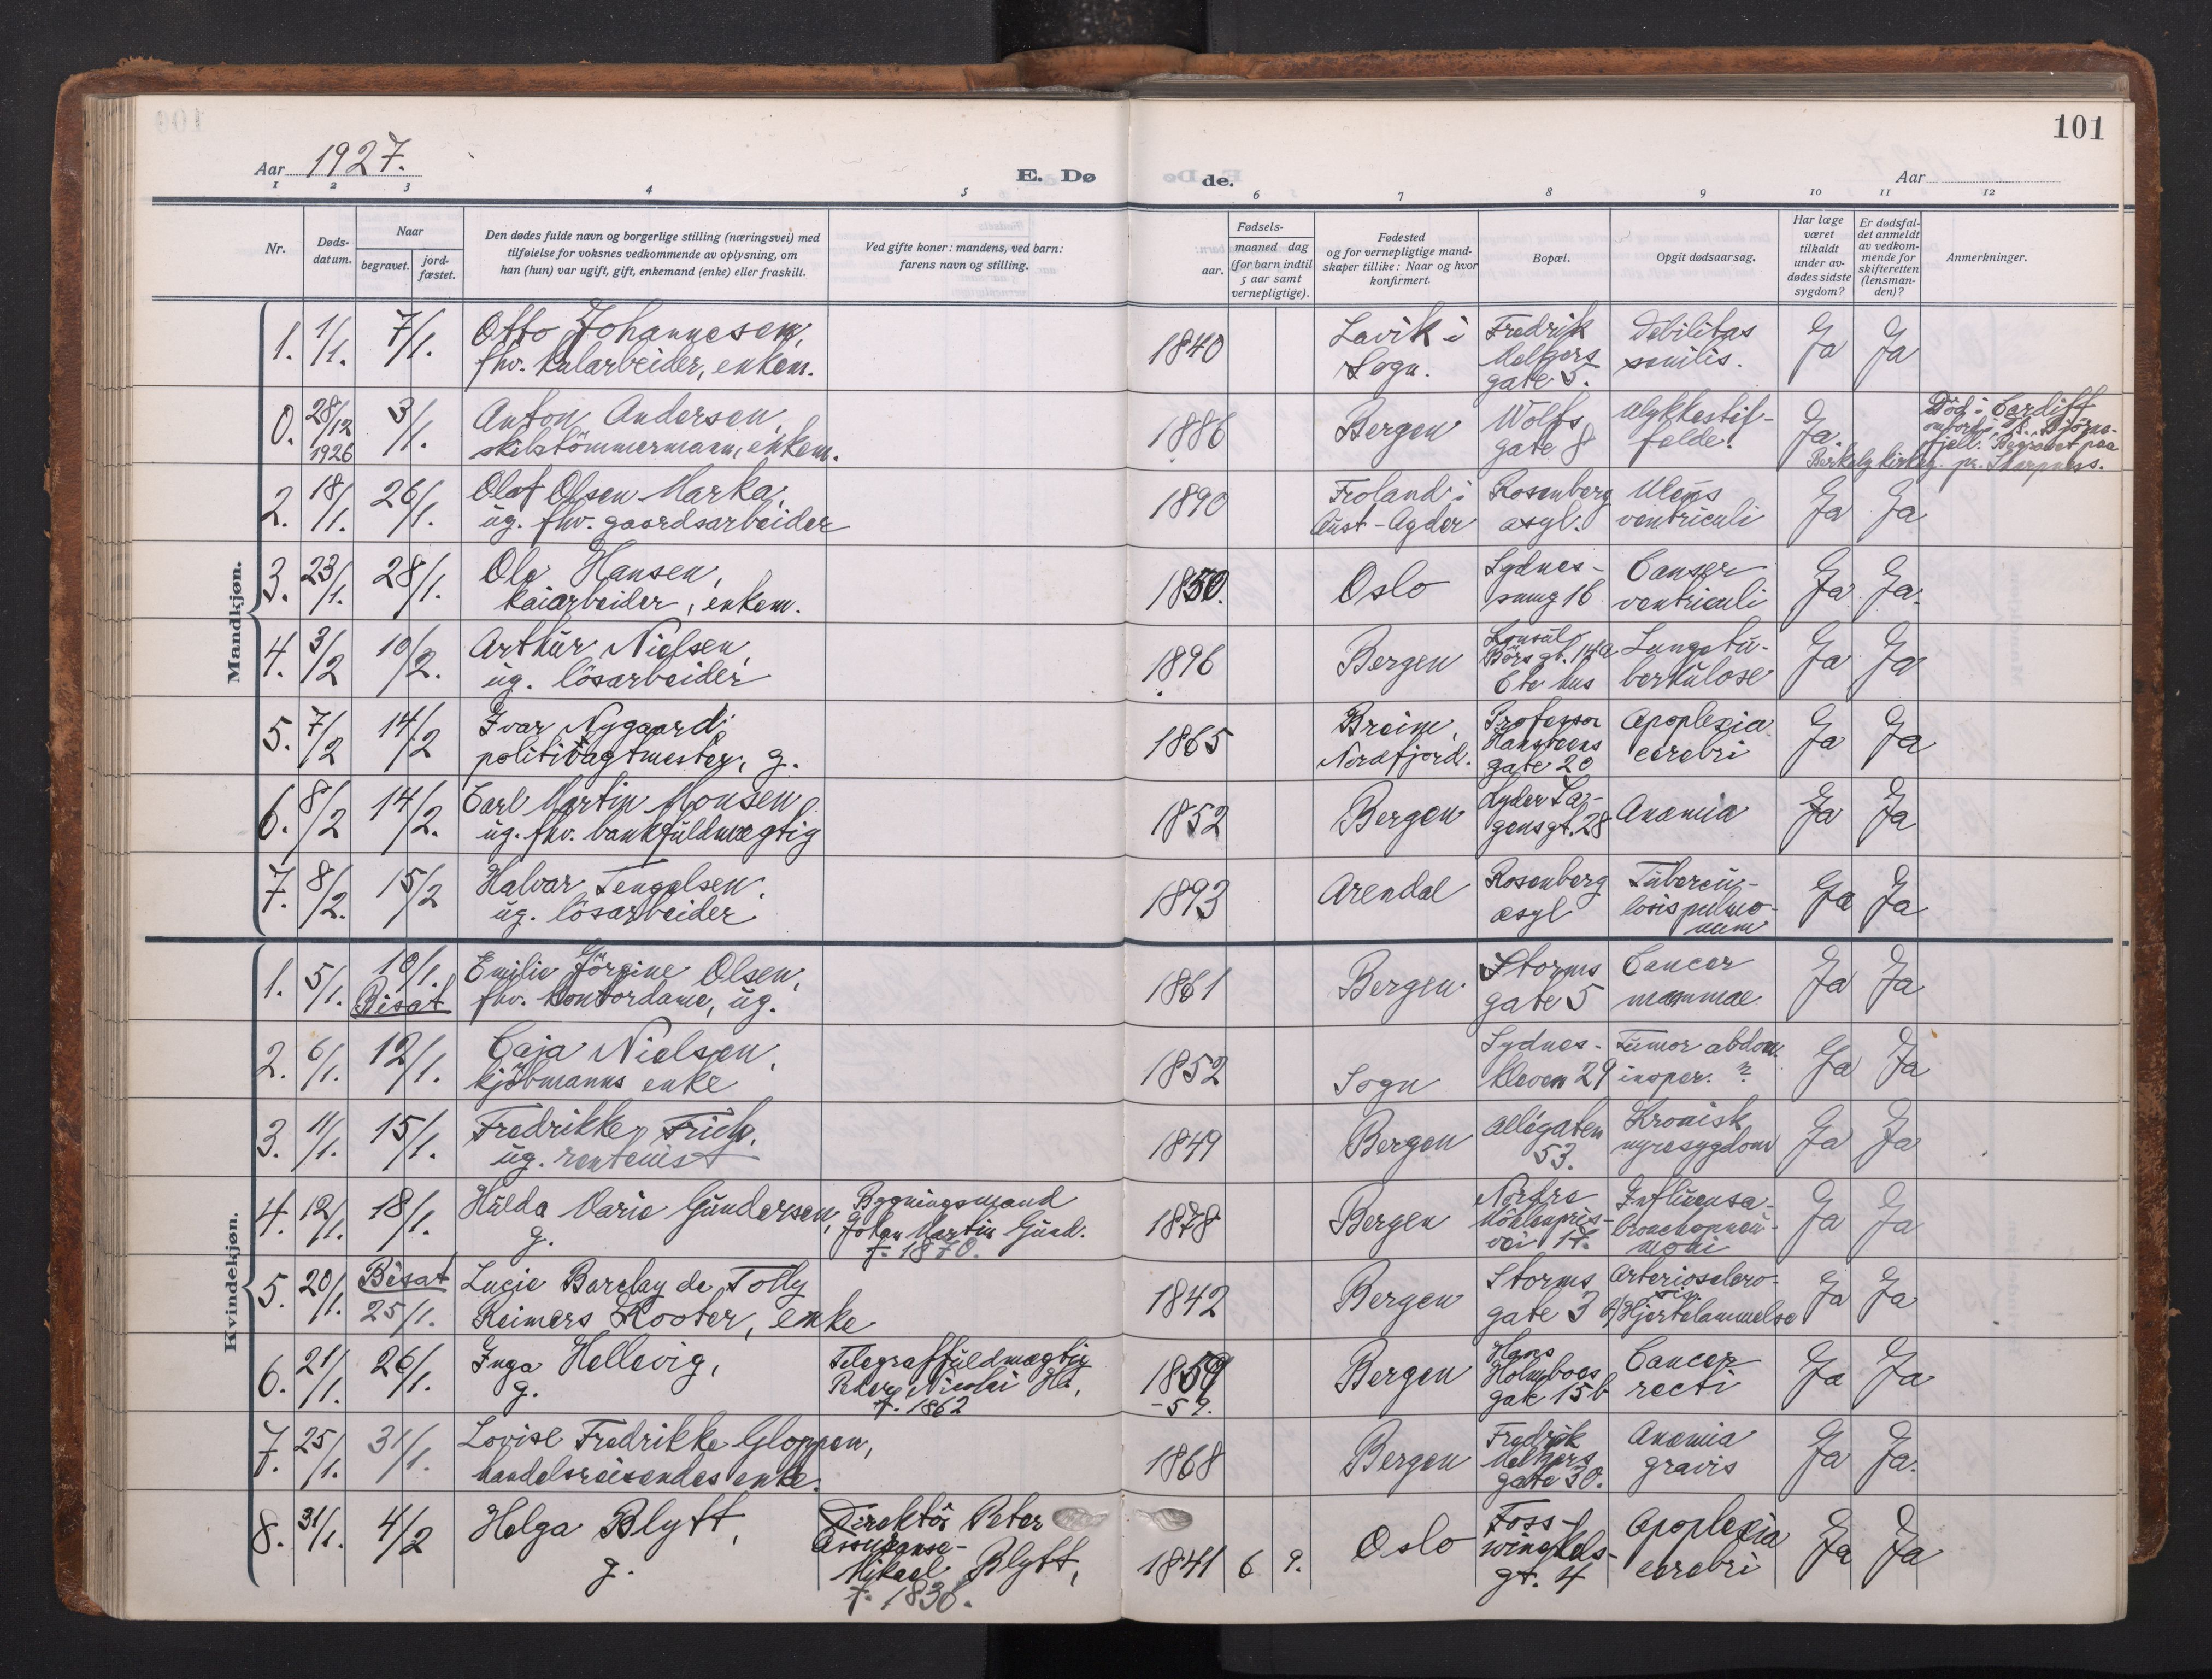 101
Aar 1927.
E. Dø
de.
Aar
1 2 3 4 5 6 7 8 9 10 11 12
Nr.
Døds-
datum.
Naar
begravet.
jord-
fæstet.
Den dødes fulde navn og borgerlige stilling (næringsvei) med
tilføielse for voksnes vedkommende av oplysning, om
han (hun) var ugift, gift, enkemand (enke) eller fraskilt.
Ved gifte koner: mandens, ved barn:
farens navn og stilling.
Fødsels-
aar.
maaned dag
(for barn indtil
5 aar samt
vernepligtige).
Fødested
og for vernepligtige mand-
skaper tillike: Naar og hvor
konfirmert.
Bopæl.
Opgit dødsaarsag.
Har læge
været
tilkaldt
under av-
dødes sidste
sygdom?
Er dødsfal-
det anmeldt
av vedkom-
mende for
skifteretten
(lensman-
den)?
Anmerkninger.
Mandkjøn.
1. 1/1. 7/1. Otto Johannesen, 1840 Lavik i Fredrik Debilitas Ja Ja
fhv. kularbeider, enkem. Sogn. Meltzers senilis.
gate 5.
0. 28/12 3/1. Anton Andersen, 1886 Bergen Wolffs Ulykkestil- Ja. Död i Cardiff
1926 skibstömmermann, enkem. gate 8 felde. ombord i D/S. Björns-
fjell. Begravet paa
Berkely kirkeg. pr. Sharpness.
2. 18/1. 26/1. Olaf Olsen Marka, 1890 Froland i Rosenberg Ulcus Ja Ja
ug. fhv. gaardsarbeider Aust-Agder asyl. ventriculi
3. 23/1. 28/1. Ole Hansen, 1850. Oslo Sydnes- Canser Ja Ja.
kaiarbeider, enkem. smug 16 ventriculi
4. 3/2 10/2. Arthur Nielsen, 1896 Bergen Konsul Lungetu- Ja Ja
ug. lösarbeider Börs gt. 14a berkulose
6te hus
5. 7/2 14/2 Ivar Nygaard, 1865 Breim, Professor Apoplexia Ja Ja
politivagtmester, g. Nordfjord. Hansteens cerebri
gate 20
6. 8/2 14/2. Carl Martin Monsen 1852 Bergen Lyder Sa- Anæmia Ja Ja
ug. fhv. bankfuldmægtig gensgt. 28
7. 8/2. 15/2 Halvar Tengelsen. 1893 Arendal Rosenberg Tubercu- Ja Ja
ug. lösarbeider asyl losis pulmo-
num
Kvindekjøn.
1. 5/1. 10/1. Emilie Jörgine Olsen, 1861 Bergen. Storms Cancer Ja Ja
Bisat fhv. kontordame, ug. gate 5 mammae
2. 6/1. 12/1. Caja Nielsen, 1852 Sogn Sydnes- Tumor abdom. Ja Ja
kjöbmanns enke kleven 29 inoper. ?
3. 11/1. 15/1. Fredrikke Frich, 1849 Bergen Allégaten Kronisk Ja Ja
ug. rentenist 53. nyresygdom
4. 12/1. 18/1. Hulda Marie Gundersen, Bygningsmand 1878 Bergen Nordre Influensa- Ja Ja
g. Johan Martin Gund. Möhlenpris- bronchopneu-
f. 1870. vei 17. moni
5. 20/1. Bisat Lucie Barclay de Tolly 1842 Bergen Storms Arterioschero- Ja Ja
25/1. Reimers Kooter, enke gate 3 sis Hjertelammelse
6. 21/1. 26/1. Inga Hellevig, Telegraffuldmægtig 1859 Bergen Hans Cancer Ja Ja
g. Peder Nicolai He., -59. Holmboes recti
f. 1862 gate 15b
7. 25/1. 31/1. Lovise Fredrikke Gloppen, 1868 Bergen Fredrik Anæmia Ja Ja.
handelsreisendes enke. Meltzers gravis
gate 30.
8. 31/1. 4/2 Helga Blytt, Direktör Peter 1841 6 9. Oslo Foss- Apoplexia Ja Ja
g. Assuranse- winckels- cerebri
Mikael Blytt, gt. 4
f. 1836.